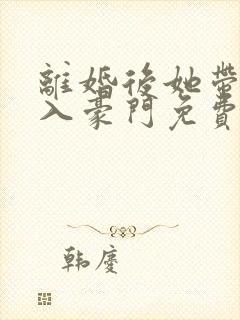 離婚後她帶
入豪門免費
韓慶